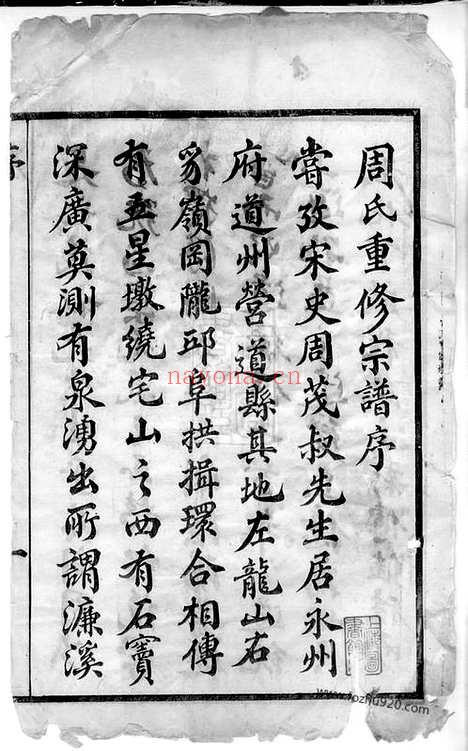 周氏重修宗譜序
嘗攷宋史周茂叔先生居永州
府道州營道縣其地左龍山右
豸嶺岡隴邱阜拱揖環合相傳
有五星墩繞宅山之西有石竇
深廣莫測有泉湧出所謂濂溪
序
一
nayona.cn
www.tozhu920.com